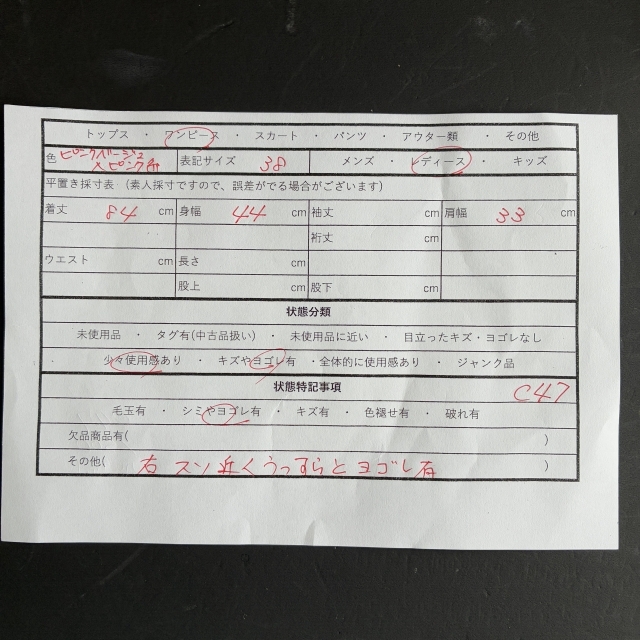 トップス ・ ワンピース ・ スカート ・ パンツ ・ アウター類 ・ その他
色 ピンクベージュ 表記サイズ 38 メンズ ・ レディース ・ キッズ
×ピンク系
平置き採寸表 (素人採寸ですので、誤差がでる場合がございます)
着丈 84 cm 身幅 44 cm 袖丈 cm 肩幅 33 cm
裄丈 cm
ウエスト cm 長さ cm
股上 cm 股下 cm
状態分類
未使用品 ・ タグ有(中古品扱い) ・ 未使用品に近い ・ 目立ったキズ・ヨゴレなし
少々使用感あり ・ キズやヨゴレ有 ・全体的に使用感あり ・ ジャンク品
状態特記事項 C47
毛玉有 ・ シミやヨゴレ有 ・ キズ有 ・ 色褪せ有 ・ 破れ有
欠品商品有( )
その他( 右 スソ 近く うっすらと ヨゴレ 有 )